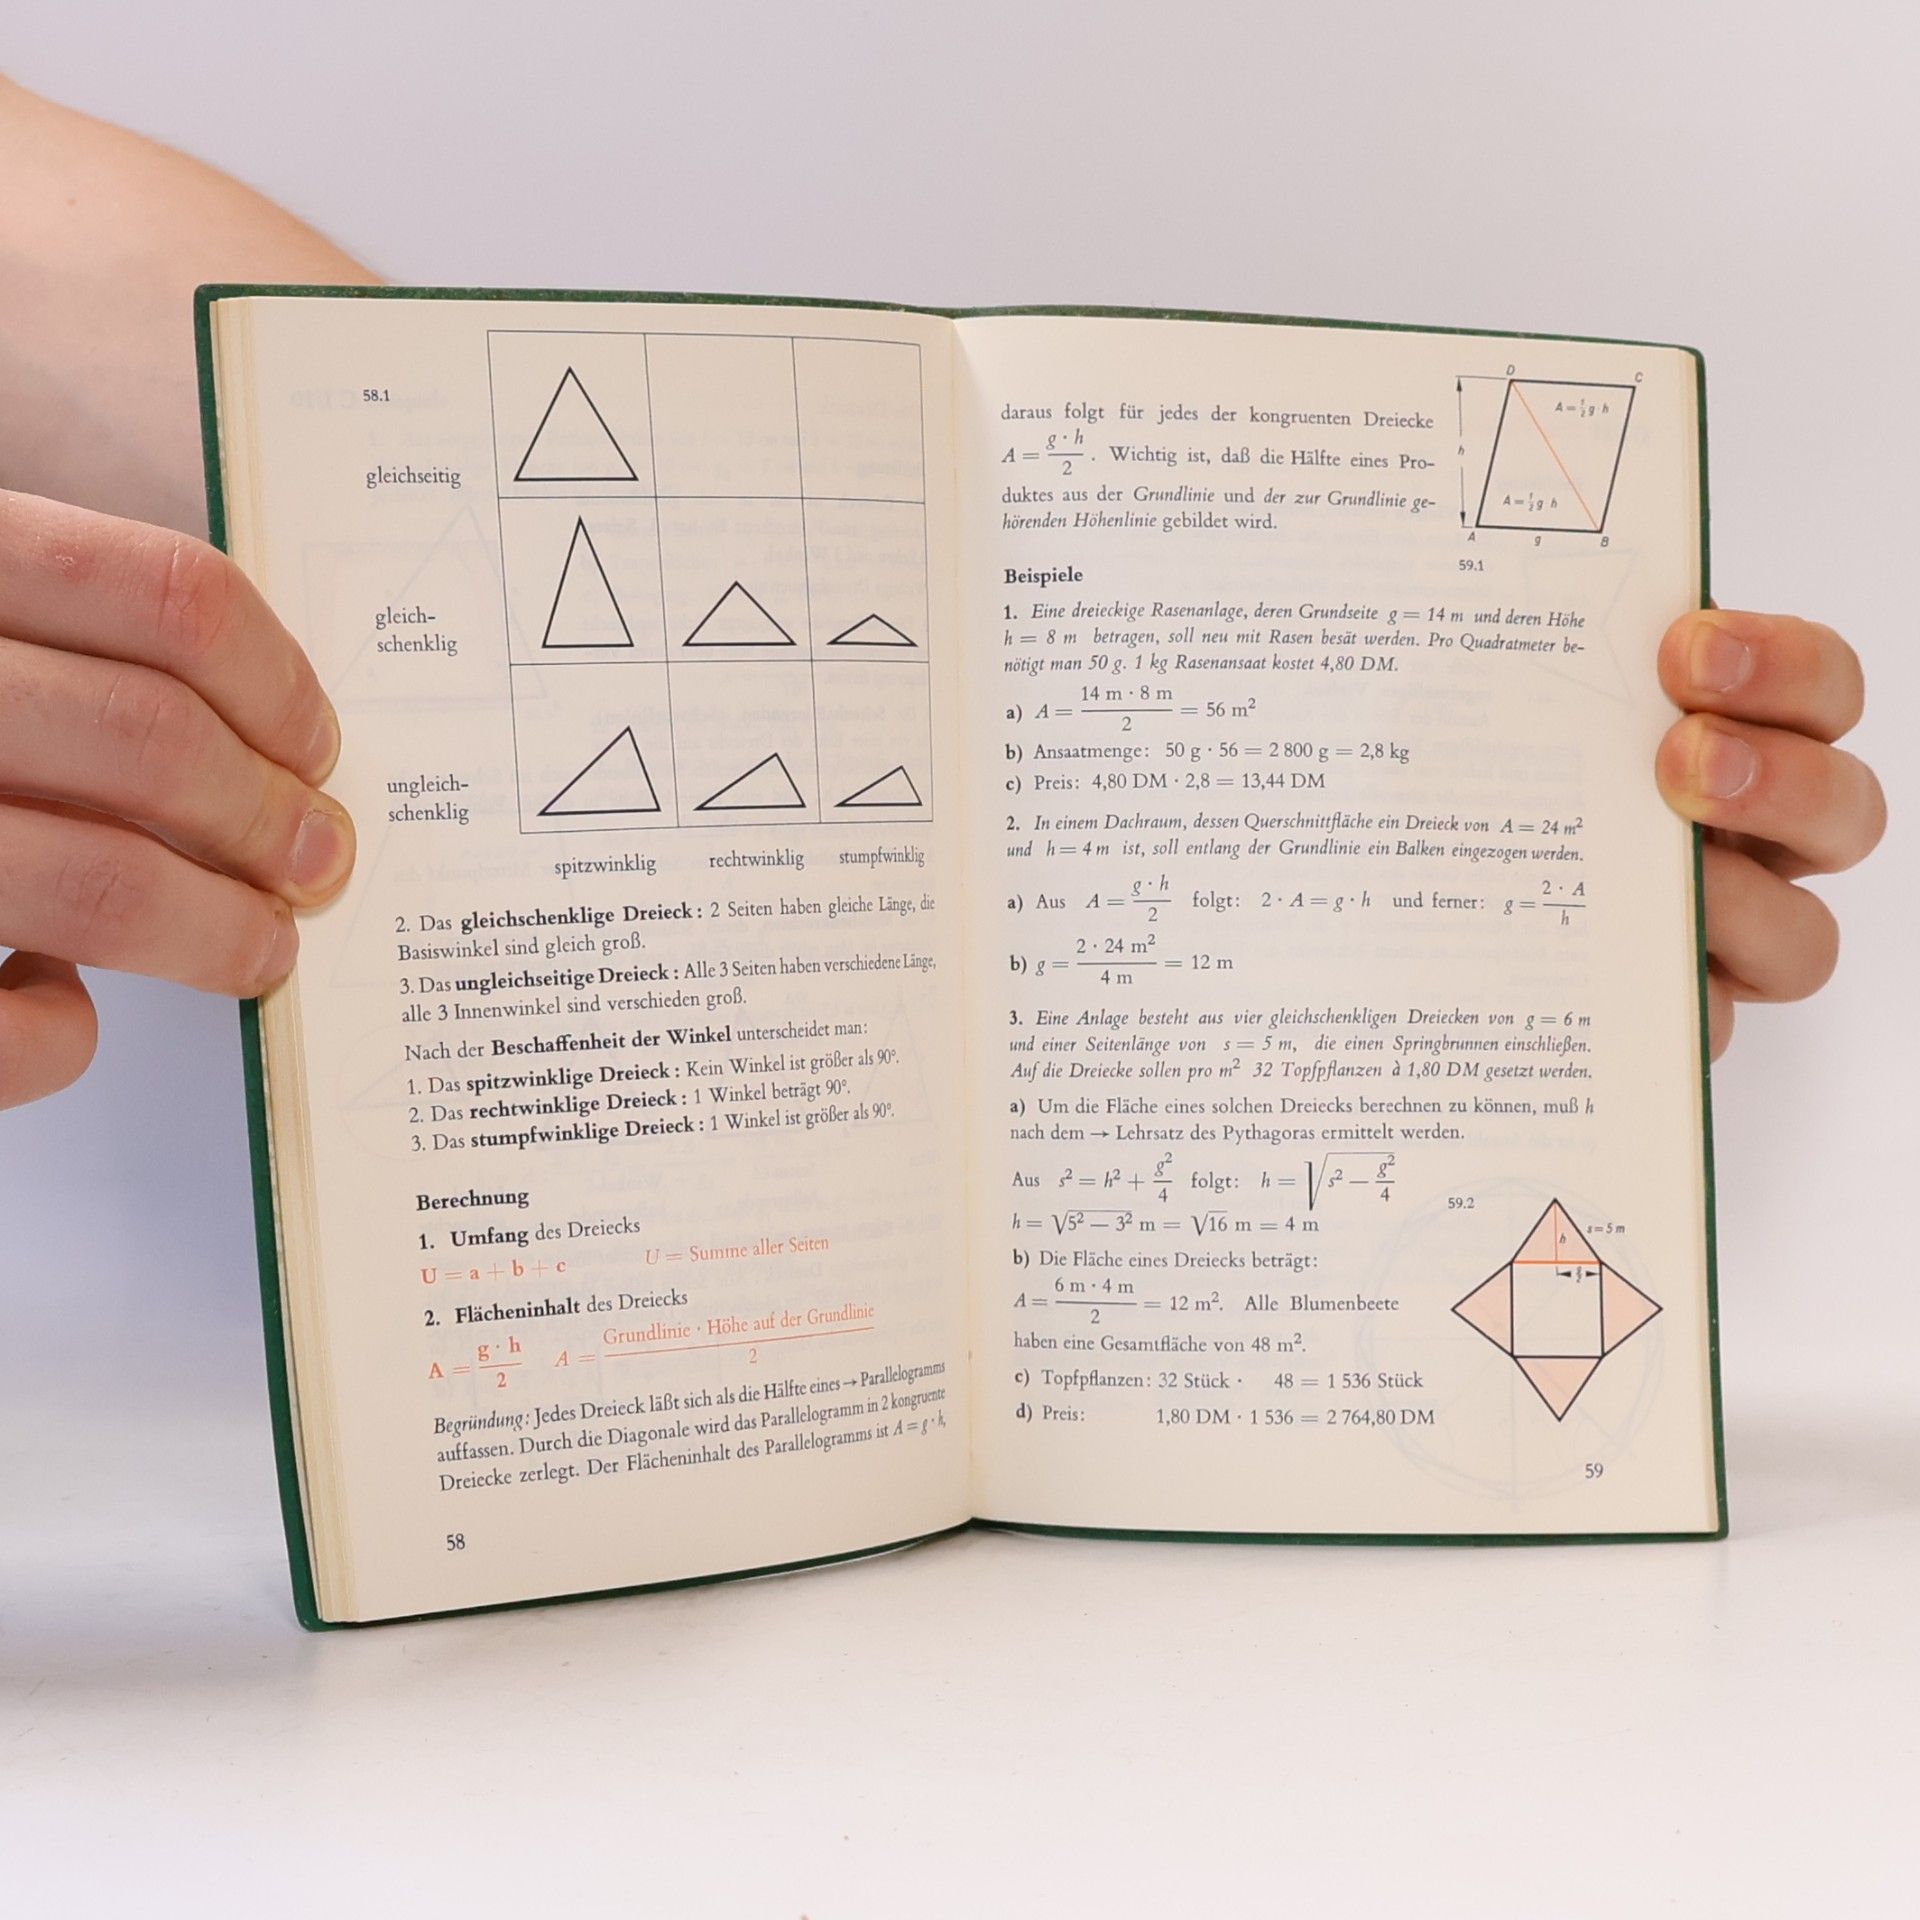 58.1
gleichseitig
gleich-
schenklig
ungleich-
schenklig
spitzwinklig rechtwinklig stumpfwinklig
2. Das gleichschenklige Dreieck: 2 Seiten haben gleiche Länge, die
Basiswinkel sind gleich groß.
3. Das ungleichseitige Dreieck: Alle 3 Seiten haben verschiedene Länge,
alle 3 Innenwinkel sind verschieden groß.
Nach der Beschaffenheit der Winkel unterscheidet man:
1. Das spitzwinklige Dreieck: Kein Winkel ist größer als 90°.
2. Das rechtwinklige Dreieck: 1 Winkel beträgt 90°.
3. Das stumpfwinklige Dreieck: 1 Winkel ist größer als 90°.
Berechnung
1. Umfang des Dreiecks
U = a + b + c U = Summe aller Seiten
2. Flächeninhalt des Dreiecks
A = g · h / 2 A = Grundlinie · Höhe auf der Grundlinie / 2
Begründung: Jedes Dreieck läßt sich als die Hälfte eines → Parallelogramms
auffassen. Durch die Diagonale wird das Parallelogramm in 2 kongruente
Dreiecke zerlegt. Der Flächeninhalt des Parallelogramms ist A = g · h,
58
daraus folgt für jedes der kongruenten Dreiecke
A = g · h / 2 . Wichtig ist, daß die Hälfte eines Pro-
duktes aus der Grundlinie und der zur Grundlinie ge-
hörenden Höhenlinie gebildet wird.
D C
A = ½ g · h
h
A = ½ g · h
A g B
59.1
Beispiele
1. Eine dreieckige Rasenanlage, deren Grundseite g = 14 m und deren Höhe
h = 8 m betragen, soll neu mit Rasen besät werden. Pro Quadratmeter be-
nötigt man 50 g. 1 kg Rasenansaat kostet 4,80 DM.
a) A = 14 m · 8 m / 2 = 56 m²
b) Ansaatmenge: 50 g · 56 = 2 800 g = 2,8 kg
c) Preis: 4,80 DM · 2,8 = 13,44 DM
2. In einem Dachraum, dessen Querschnittfläche ein Dreieck von A = 24 m²
und h = 4 m ist, soll entlang der Grundlinie ein Balken eingezogen werden.
a) Aus A = g · h / 2 folgt: 2 · A = g · h und ferner: g = 2 · A / h
b) g = 2 · 24 m² / 4 m = 12 m
3. Eine Anlage besteht aus vier gleichschenkligen Dreiecken von g = 6 m
und einer Seitenlänge von s = 5 m, die einen Springbrunnen einschließen.
Auf die Dreiecke sollen pro m² 32 Topfpflanzen à 1,80 DM gesetzt werden.
a) Um die Fläche eines solchen Dreiecks berechnen zu können, muß h
nach dem → Lehrsatz des Pythagoras ermittelt werden.
Aus s² = h² + g²/4 folgt: h = √(s² − g²/4)
h = √(5² − 3²) m = √16 m = 4 m
b) Die Fläche eines Dreiecks beträgt:
A = 6 m · 4 m / 2 = 12 m². Alle Blumenbeete
haben eine Gesamtfläche von 48 m².
c) Topfpflanzen: 32 Stück · 48 = 1 536 Stück
d) Preis: 1,80 DM · 1 536 = 2 764,80 DM
59.2
s = 5 m
h
g/2
59